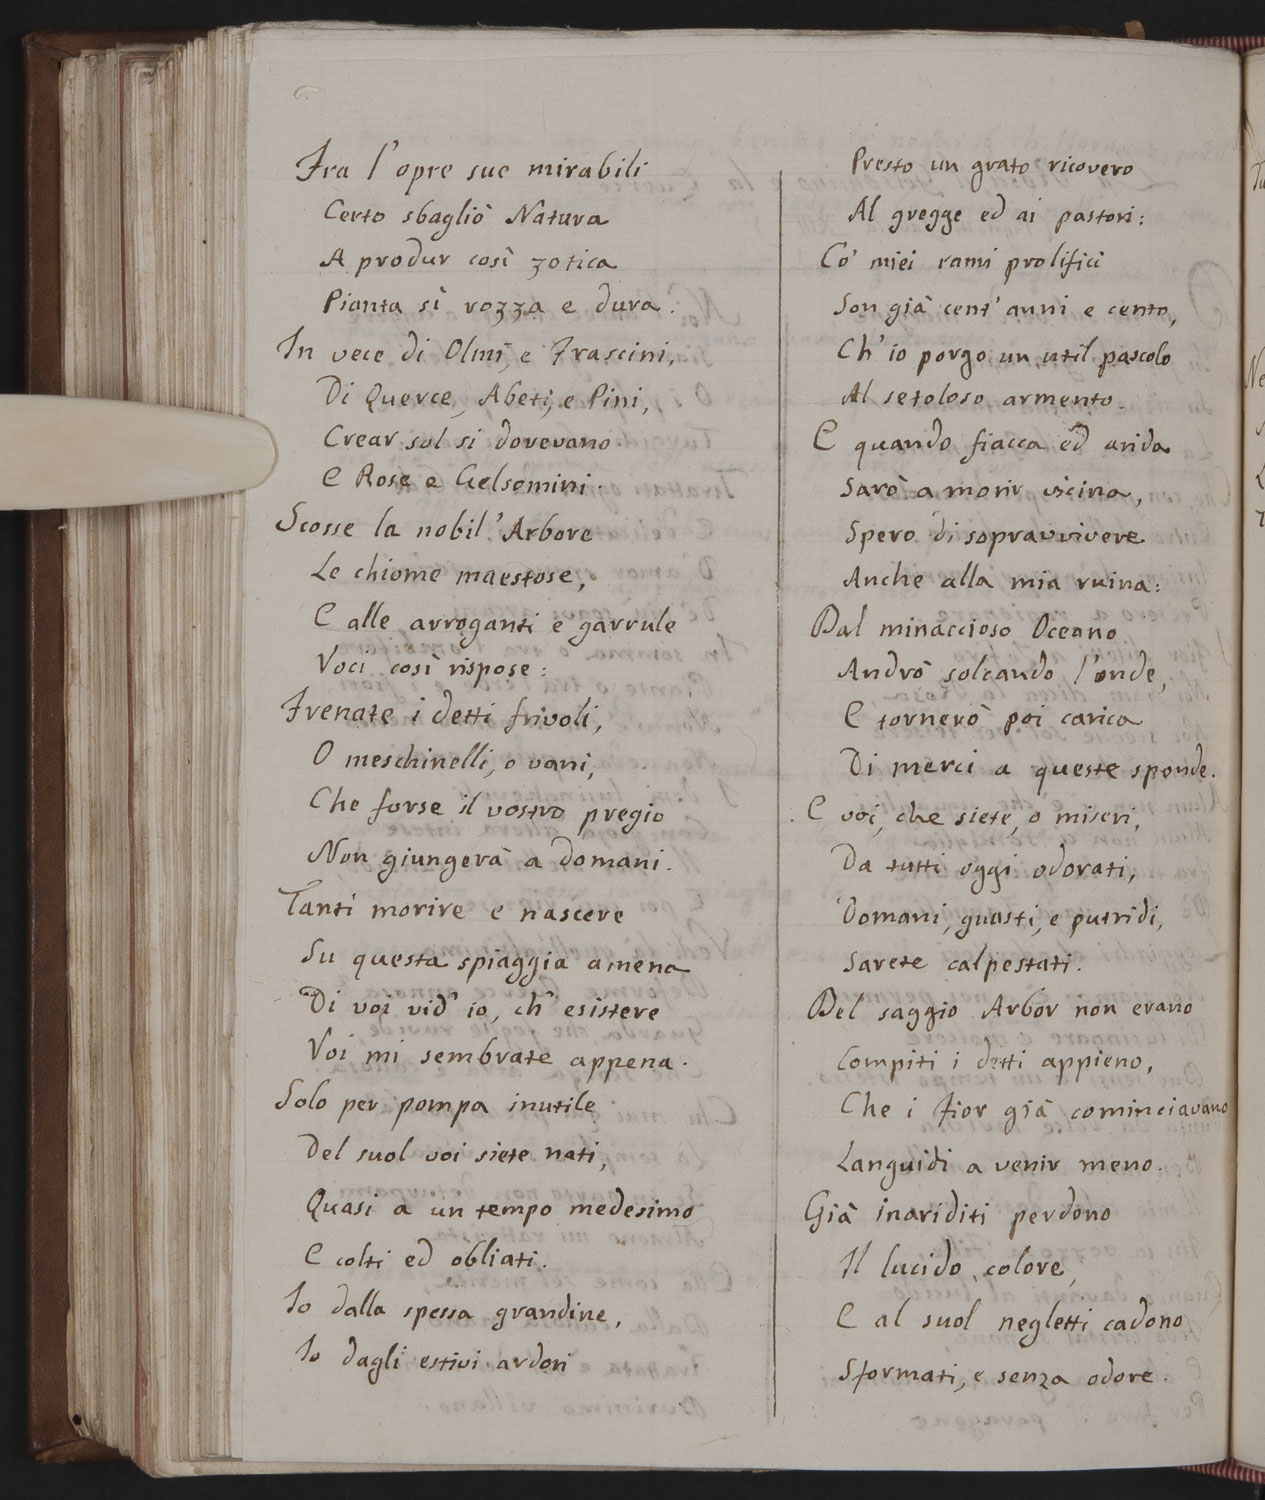 Fra l'opre sue mirabili
Certo sbagliò Natura
A produr così zotica
Pianta sì rozza e dura.
In vece di Olmi, e Frascini,
Di Querce, Abeti, e Pini,
Crear sol si dovevano
E Rose e Gelsomini.
Scosse la nobil' Arbore
Le chiome maestose,
E alle arroganti e garrule
Voci così rispose:
Frenate i detti frivoli,
O meschinelli, o vani,
Che forse il vostro pregio
Non giungerà a domani.
Tanti morire e nascere
Su questa spiaggia amena
Di voi vid' io, ch' esistere
Voi mi sembrate appena.
Solo per pompa inutile
Del suol voi siete nati,
Quasi a un tempo medesimo
E colti ed obliati.
Io dalla spessa grandine,
Io dagli estivi ardori
Presto un grato ricovero
Al gregge ed ai pastori:
Co' miei rami prolifici
Son già cent' anni e cento,
Ch' io porgo un util pascolo
Al setoloso armento.
E quando fiacca ed arida
Sarò a morir vicina,
Spero di sopravvivere
Anche alla mia ruina:
Dal minaccioso Oceano
Andrò solcando l'onde,
E tornerò poi carica
Di merci a queste sponde.
E voi, che siete, o miseri,
Da tutti oggi odorati,
Domani, guasti, e putridi,
Sarete calpestati.
Del saggio Arbor non erano
Compiti i detti appieno,
Che i Fior già cominciavano
Languidi a venir meno.
Già inariditi perdono
Il lucido colore,
E al suol negletti cadono
Sformati, e senza odore.